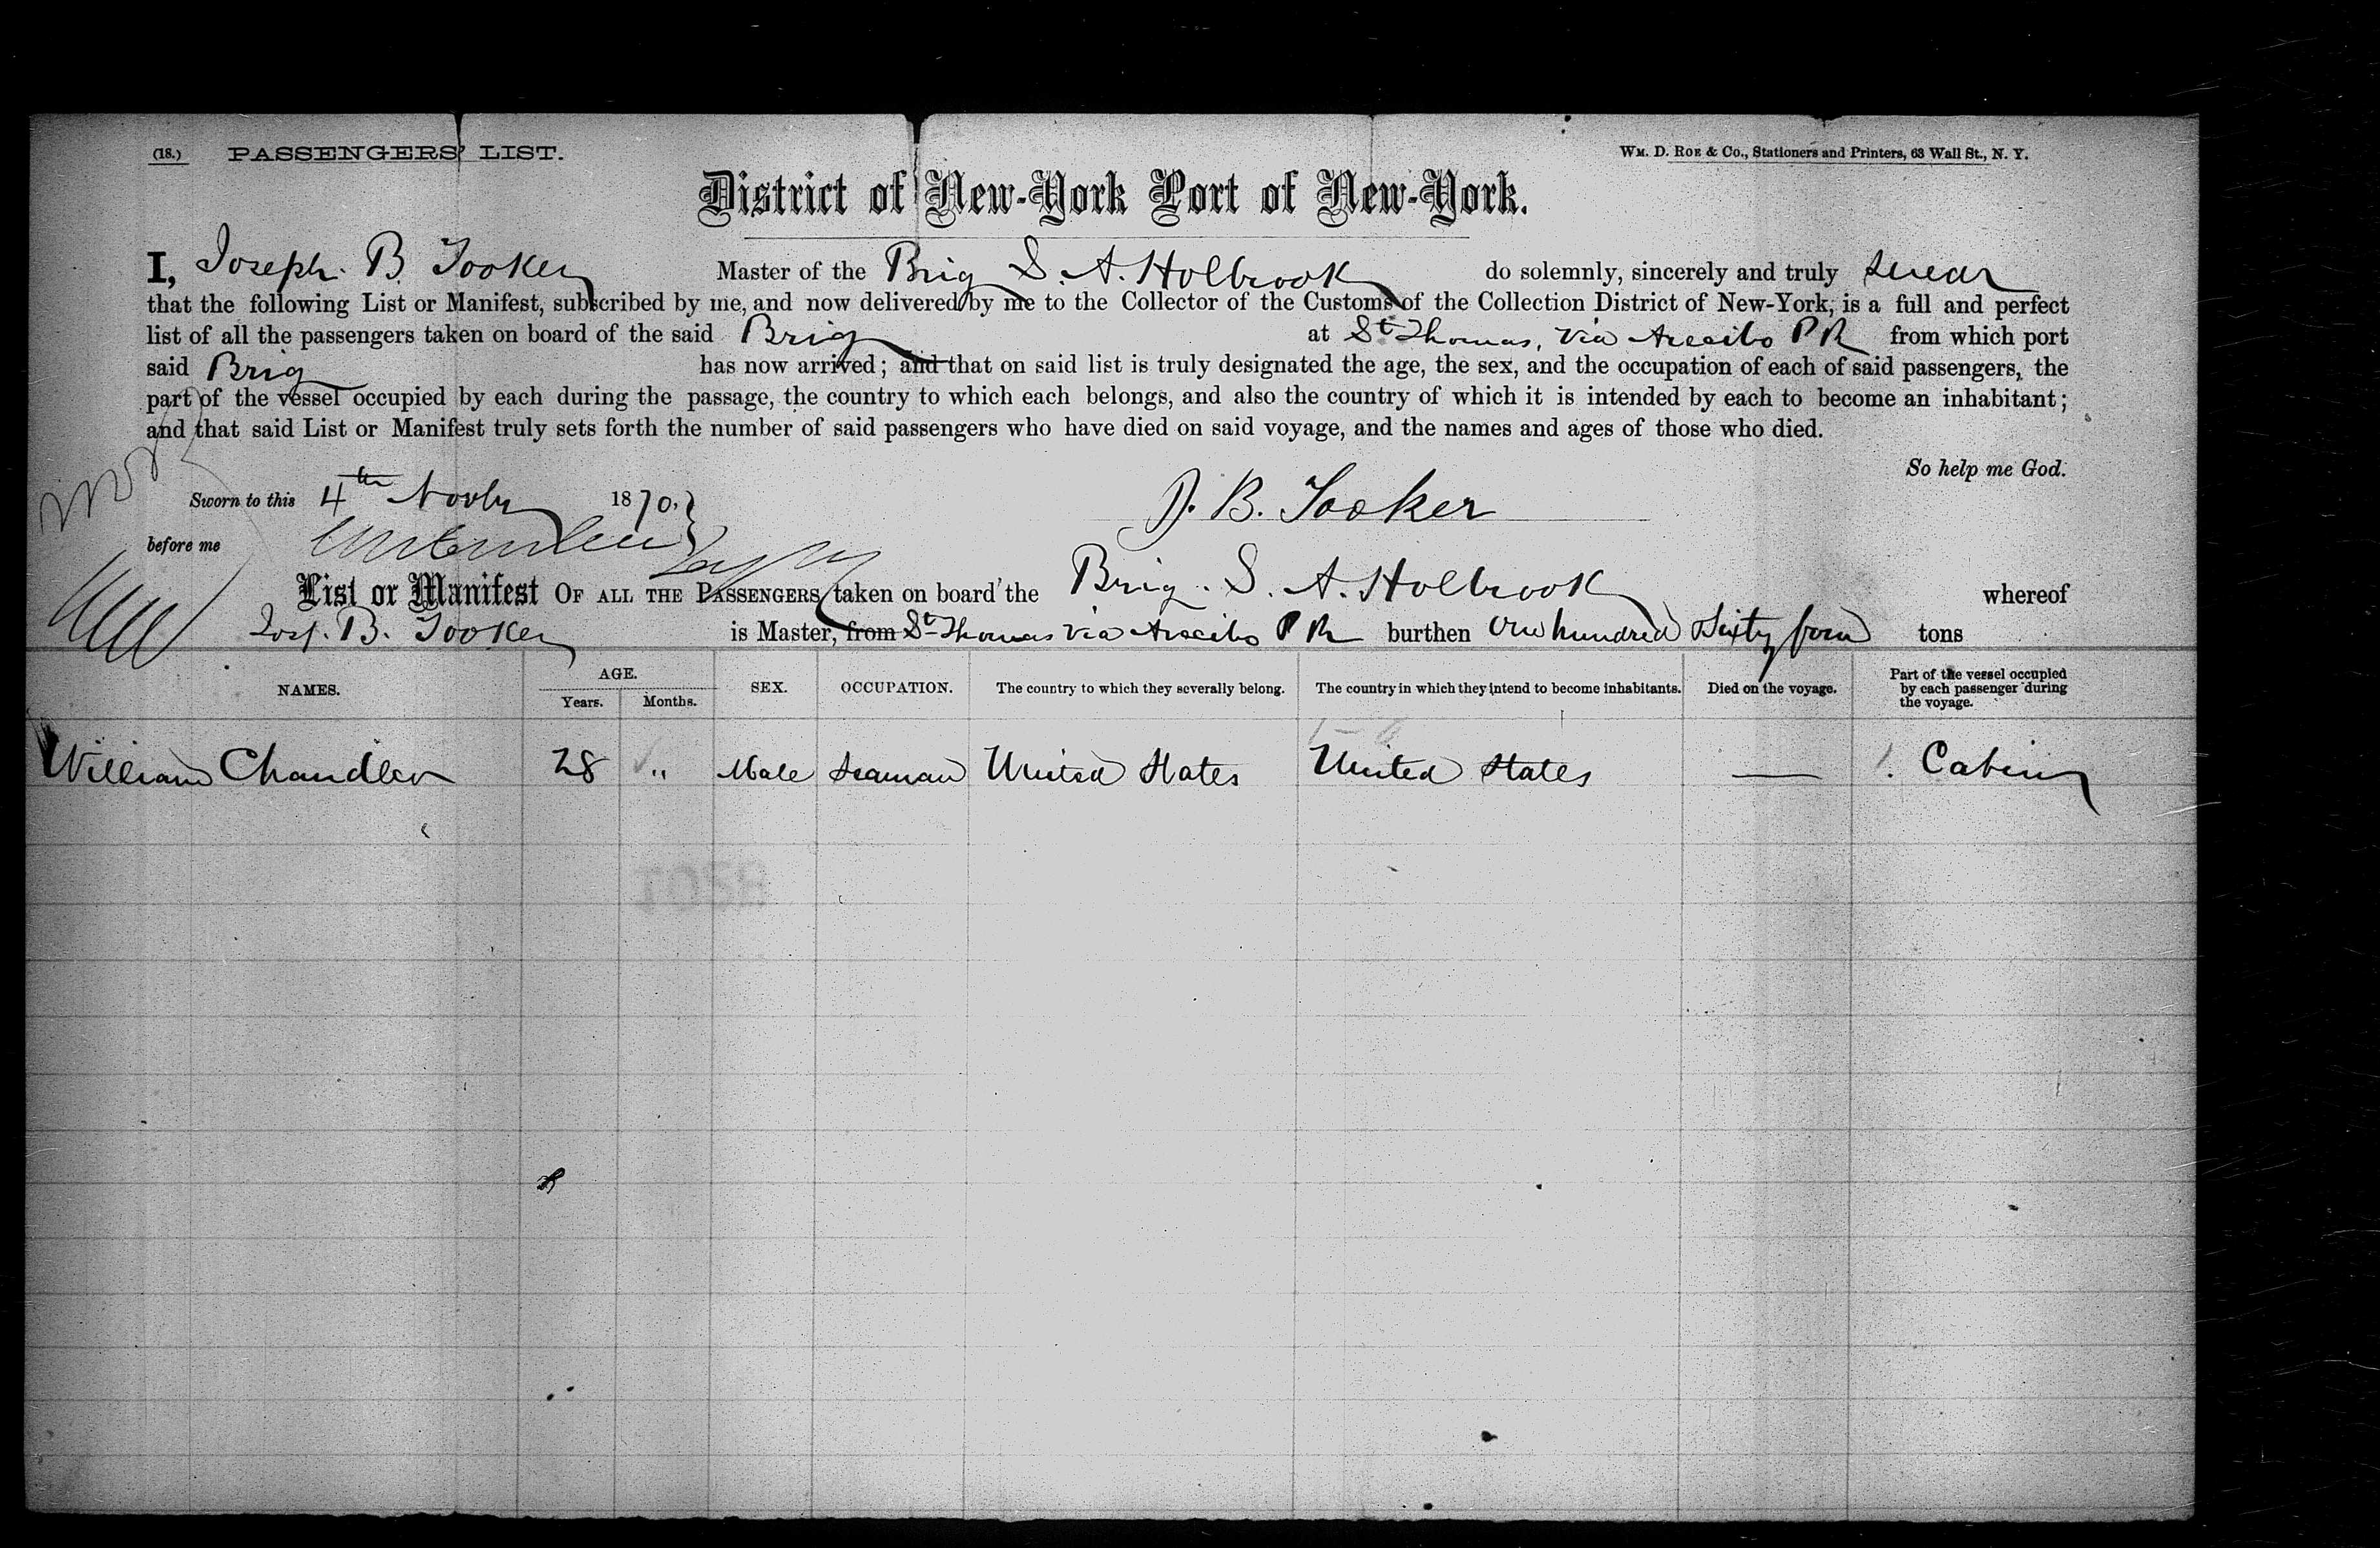 (18.) PASSENGERS' LIST. WM. D. ROE & Co., Stationers and Printers, 63 Wall St., N. Y.
District of New-York Port of New-York.
I, Joseph. B. Tooker Master of the Brig S. A. Holbrook do solemnly, sincerely and truly swear
that the following List or Manifest, subscribed by me, and now delivered by me to the Collector of the Customs of the Collection District of New-York, is a full and perfect
list of all the passengers taken on board of the said Brig at St Thomas, via Arecibo P R from which port
said Brig has now arrived; and that on said list is truly designated the age, the sex, and the occupation of each of said passengers, the
part of the vessel occupied by each during the passage, the country to which each belongs, and also the country of which it is intended by each to become an inhabitant;
and that said List or Manifest truly sets forth the number of said passengers who have died on said voyage, and the names and ages of those who died.
So help me God.
Sworn to this 4th Novbr 1870. J. B. Tooker
before me
List or Manifest OF ALL THE PASSENGERS taken on board the Brig. S. A. Holbrook whereof
Josp. B. Tooker is Master, from St Thomas via Arecibo P R burthen One hundred Sixty four tons
NAMES. AGE. Years. Months. SEX. OCCUPATION. The country to which they severally belong. The country in which they intend to become inhabitants. Died on the voyage. Part of the vessel occupied by each passenger during the voyage.
William Chandler 28 " Male Seaman United States United States — 1. Cabin